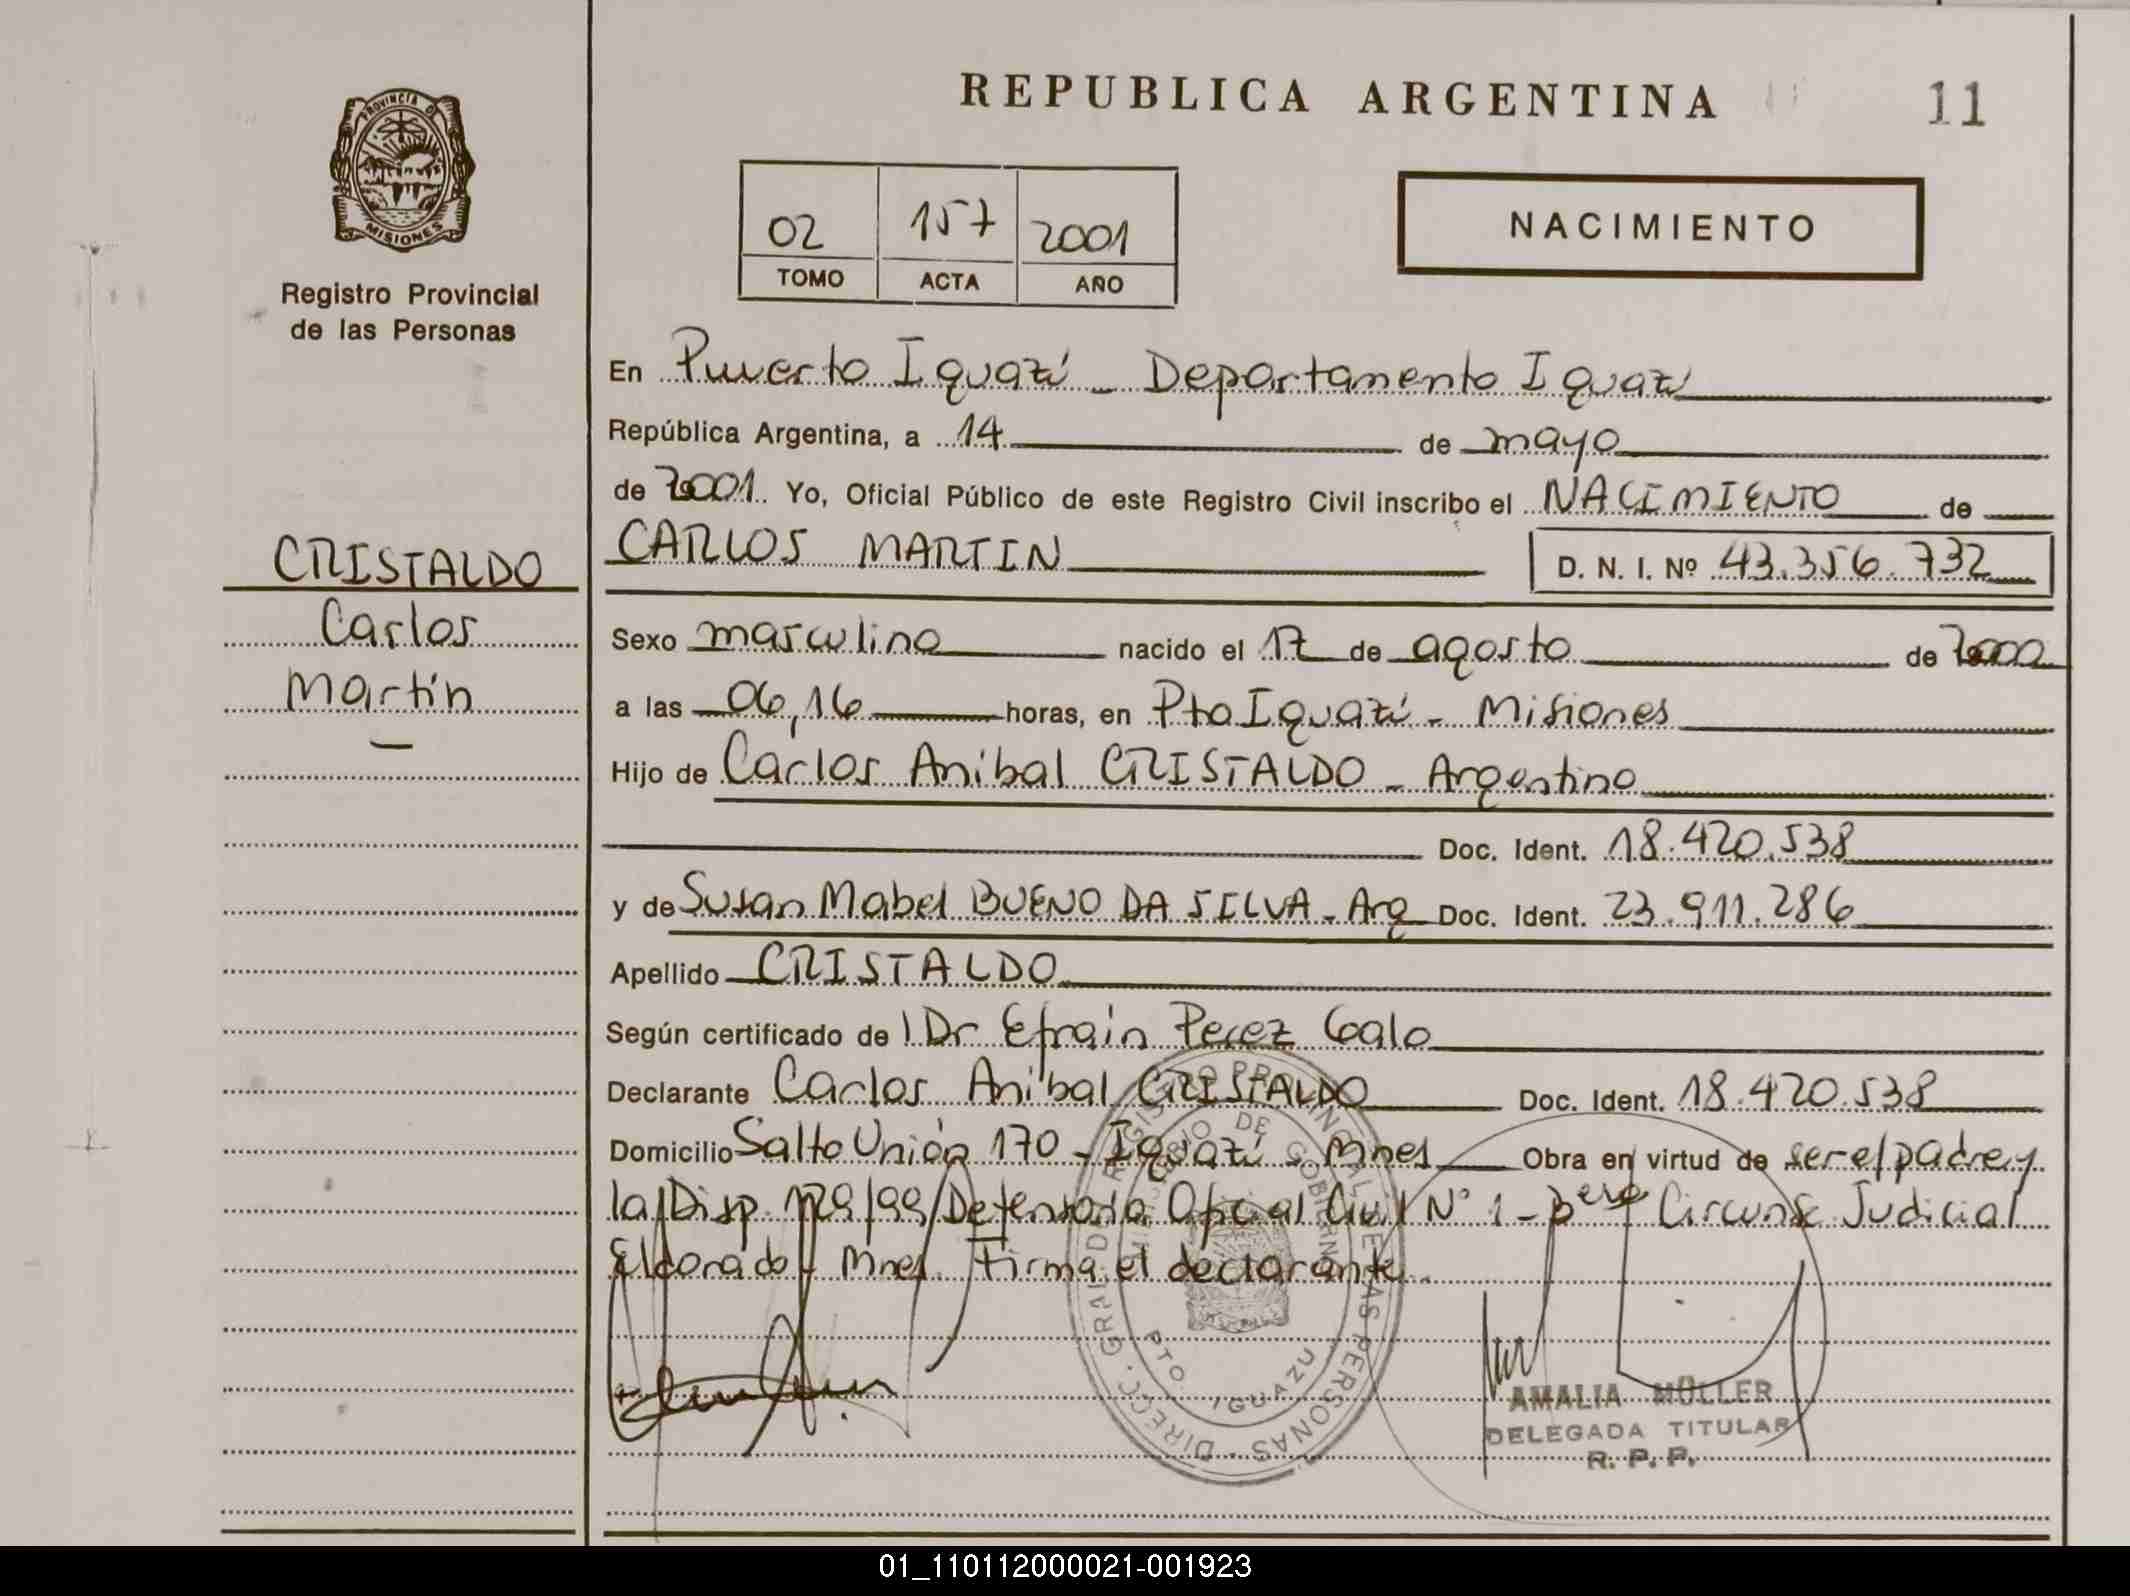 REPUBLICA ARGENTINA
11
PROVINCIA DE
MISIONES
Registro Provincial
de las Personas
02 157 2001
TOMO ACTA AÑO
NACIMIENTO
En Puerto Iguazú - Departamento Iguazú
República Argentina, a 14 de mayo
de 2001. Yo, Oficial Público de este Registro Civil inscribo el NACIMIENTO de
CARLOS MARTIN D. N. I. Nº 43.356.732
CRISTALDO
Carlos
Martín
Sexo masculino nacido el 17 de agosto de 2000
a las 06,16 horas, en Pto Iguazú - Misiones
Hijo de Carlos Anibal CRISTALDO - Argentino
Doc. Ident. 18.420.538
y de Susan Mabel BUENO DA SILVA - Arg Doc. Ident. 23.911.286
Apellido CRISTALDO
Según certificado de l Dr Efrain Perez Galo
Declarante Carlos Anibal CRISTALDO Doc. Ident. 18.420.538
Domicilio Salto Unión 170 - Iguazú - Mnes Obra en virtud de ser el padre y
la Disp. 129/99 Defensoria Oficial Civil Nº 1 - Circunsc Judicial
Eldorado - Mnes. Firma el declarante.
PTO. IGUAZU
AMALIA MÜLLER
DELEGADA TITULAR
R. P. P.
01_110112000021-001923